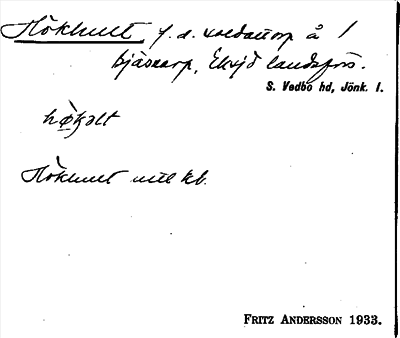 Hökhult f. d. soldattorp å
Bjäskarp, Eksjö landsförs.
S. Vedbo hd, Jönk. l.
Hökhult utt kb.
FRITZ ANDERSSON 1933.